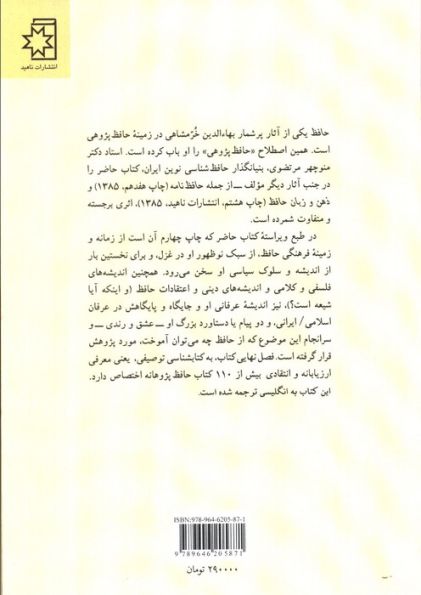 انتشارات ناهید
حافظ یکی از آثار پرشمار بهاءالدین خُرّمشاهی در زمینهٔ حافظ پژوهی
است. همین اصطلاح «حافظ پژوهی» را او باب کرده است. استاد دکتر
منوچهر مرتضوی، بنیانگذار حافظ‌شناسی نوین ایران، کتاب حاضر را
در جنب آثار دیگر مؤلف ــ از جمله حافظ‌نامه (چاپ هفدهم، ۱۳۸۵) و
ذهن و زبان حافظ (چاپ هشتم، انتشارات ناهید، ۱۳۸۵)، اثری برجسته
و متفاوت شمرده است.
در طبع ویراستهٔ کتاب حاضر که چاپ چهارم آن است از زمانه و
زمینهٔ فرهنگی حافظ، از سبک نوظهور او در غزل، و برای نخستین بار
از اندیشه و سلوک سیاسی او سخن می‌رود. همچنین اندیشه‌های
فلسفی و کلامی و اندیشه‌های دینی و اعتقادات حافظ (و اینکه آیا
شیعه است؟)، نیز اندیشهٔ عرفانی او و جایگاه و پایگاهش در عرفان
اسلامی/ ایرانی، و دو پیام یا دستاورد بزرگ او ــ عشق و رندی ــ و
سرانجام این موضوع که از حافظ چه می‌توان آموخت، مورد پژوهش
قرار گرفته است. فصل نهایی کتاب، به کتابشناسی توصیفی، یعنی معرفی
ارزیابانه و انتقادی بیش از ۱۱۰ کتاب حافظ پژوهانه اختصاص دارد.
این کتاب به انگلیسی ترجمه شده است.
ISBN:978-964-6205-87-1
9 789646 205871
۲۹۰۰۰۰ تومان